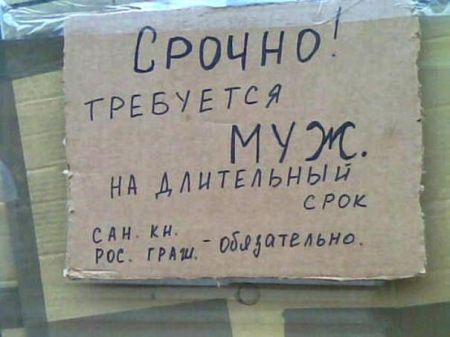 СРОЧНО!
ТРЕБУЕТСЯ
МУЖ.
НА ДЛИТЕЛЬНЫЙ
СРОК
САН. КН.
РОС. ГРАЖ. - Обязательно.